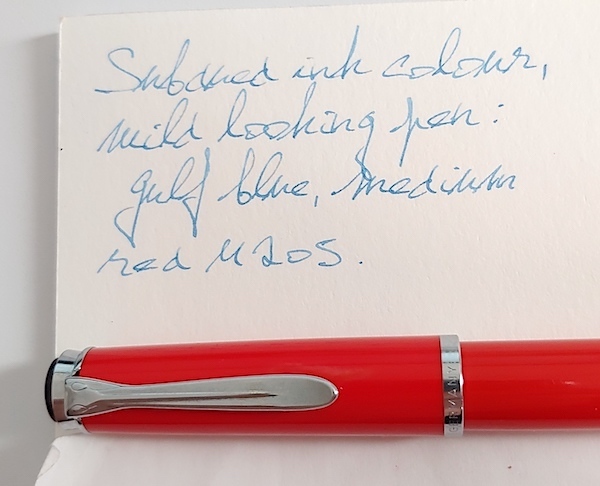 Subdued ink colour,
mild looking pen:
gulf blue, medium
red M205.
GERMANY